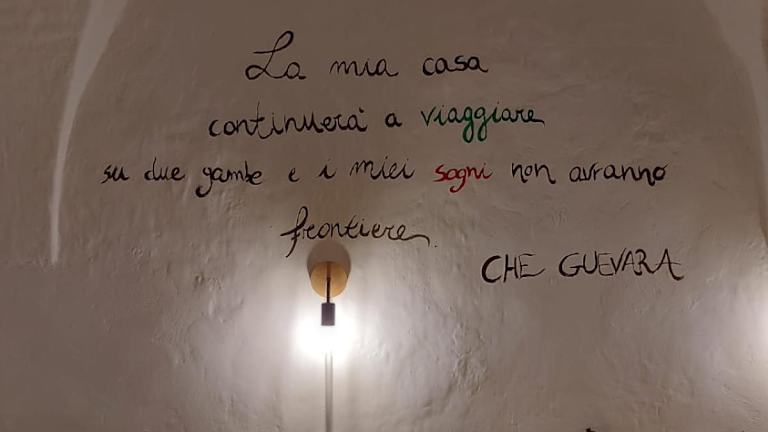 La mia casa
continuerà a viaggiare
su due gambe e i miei sogni non avranno
frontiere.
CHE GUEVARA